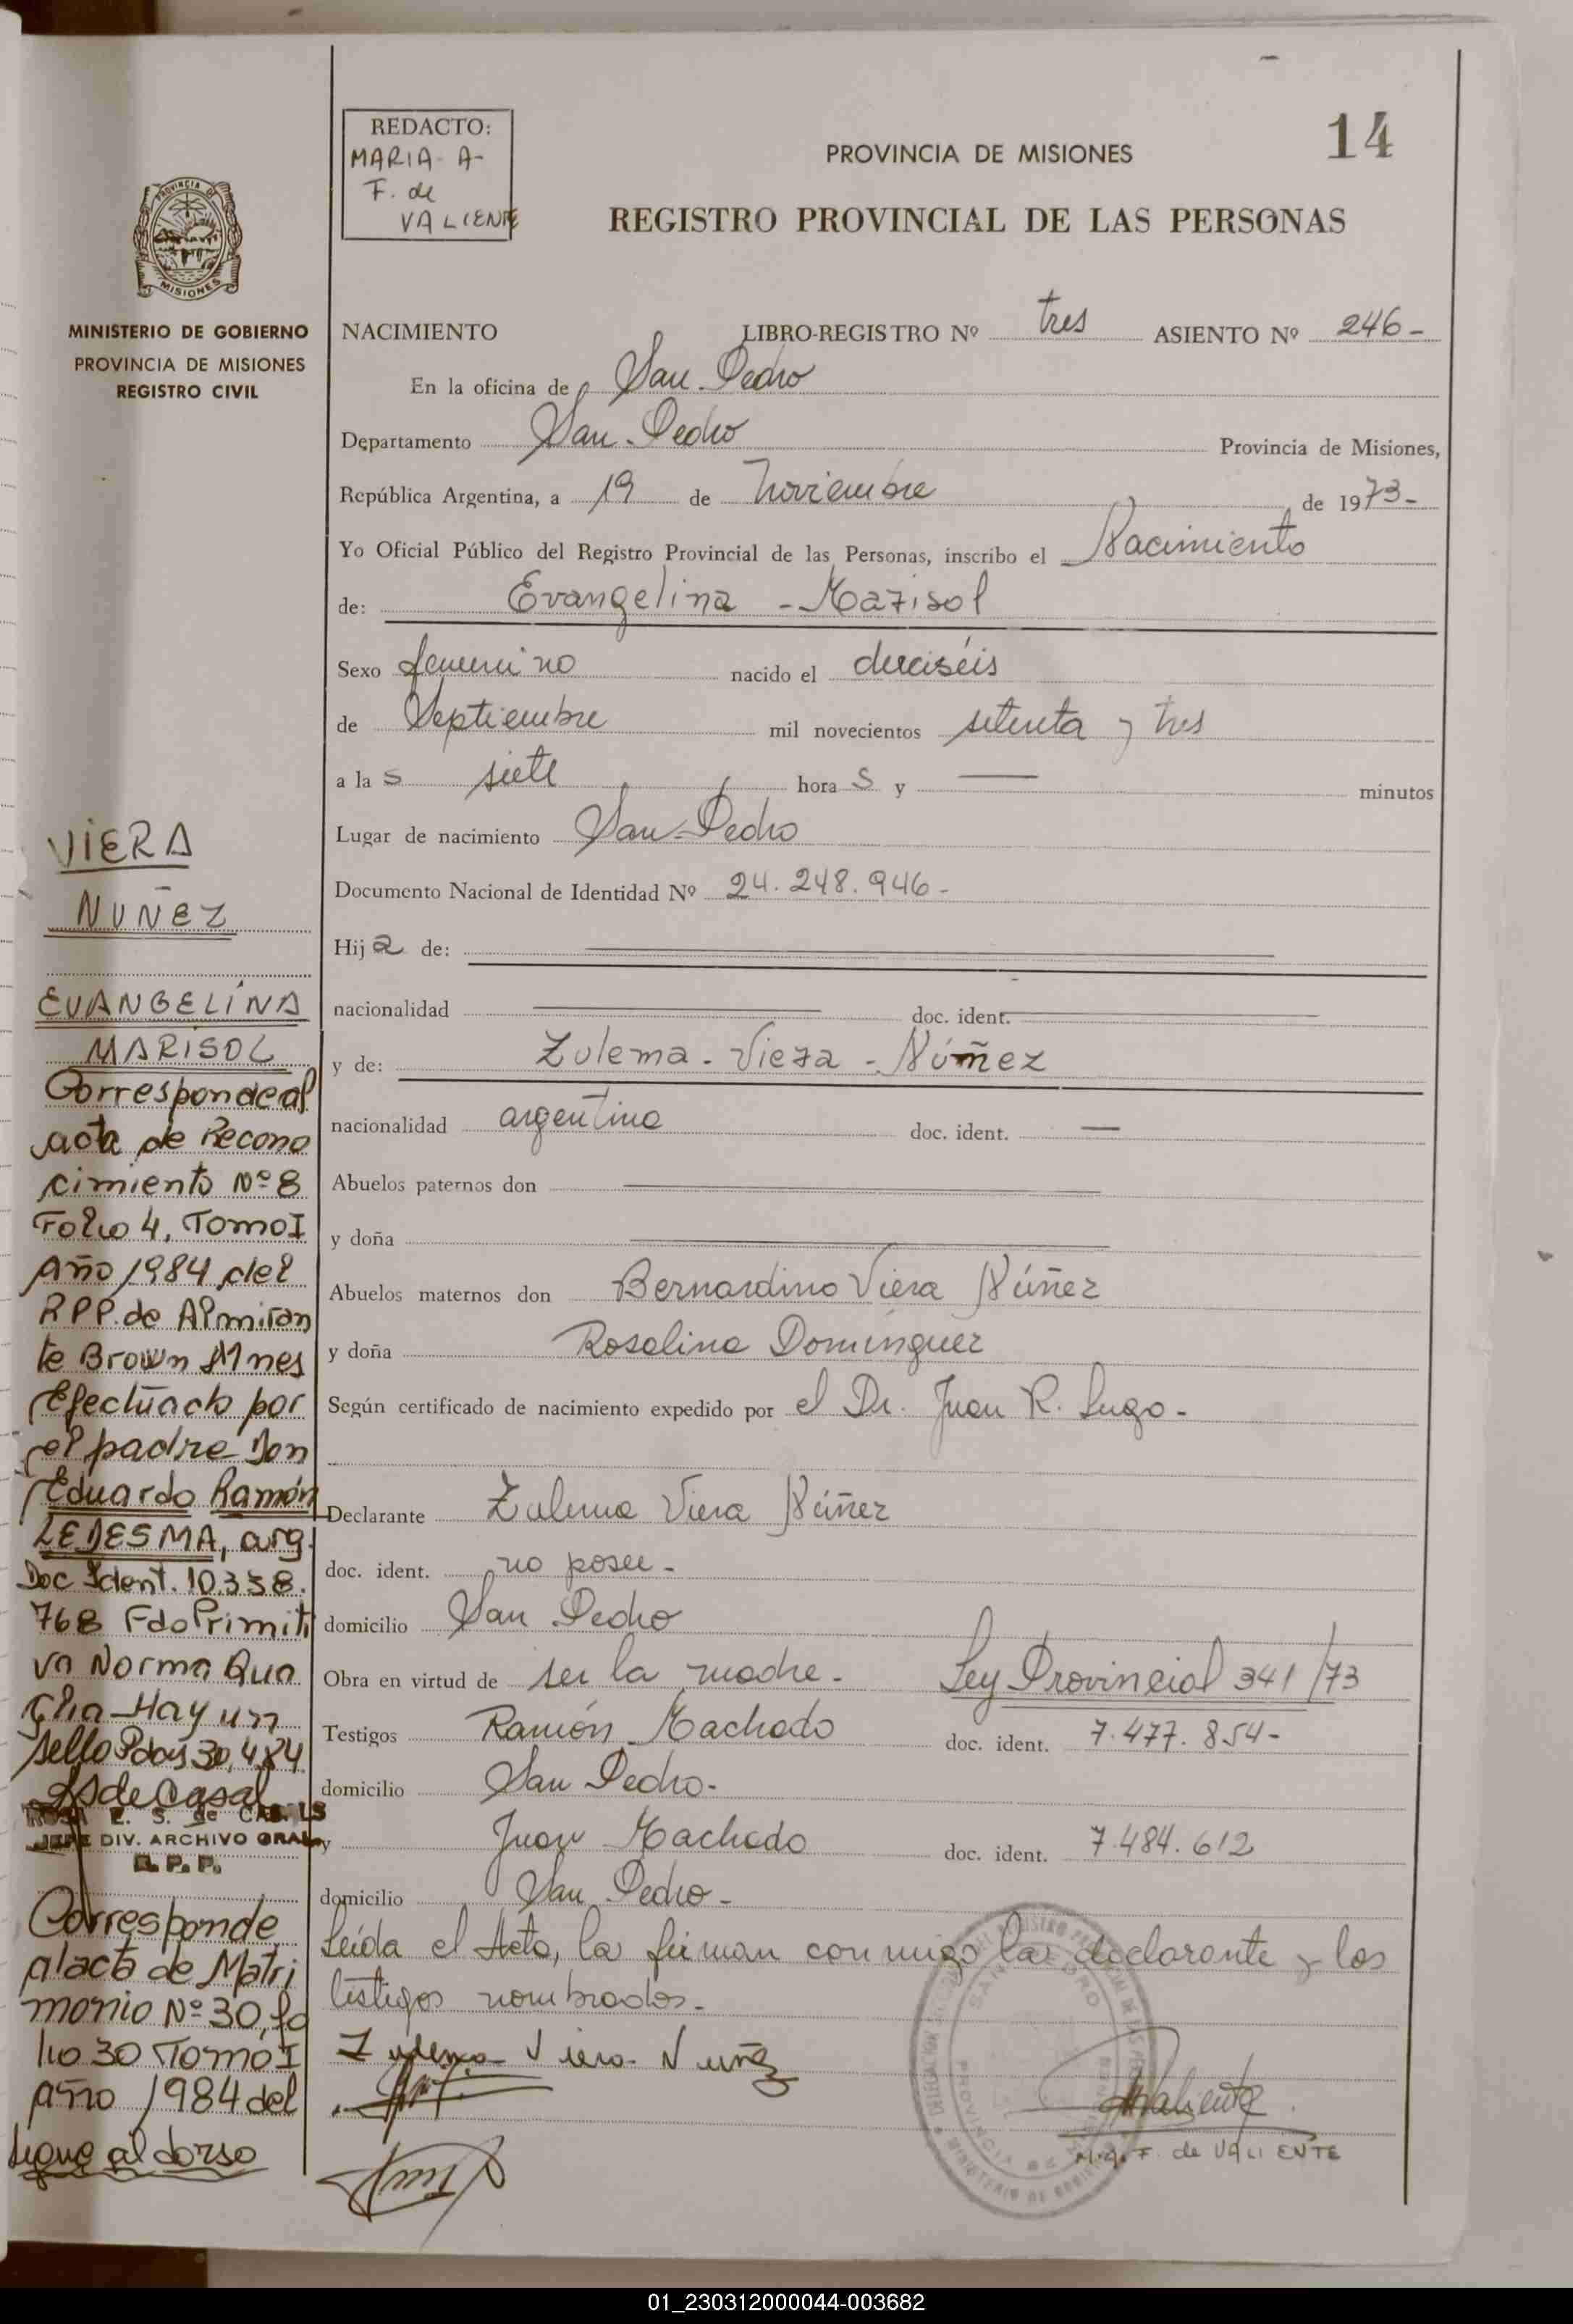 14
REDACTO:
MARIA-A-
F. de
VALIENTE
PROVINCIA DE MISIONES
REGISTRO PROVINCIAL DE LAS PERSONAS
PROVINCIA DE
MISIONES
MINISTERIO DE GOBIERNO
PROVINCIA DE MISIONES
REGISTRO CIVIL
NACIMIENTO LIBRO-REGISTRO Nº tres ASIENTO Nº 246-
En la oficina de San-Pedro
Departamento San-Pedro Provincia de Misiones,
República Argentina, a 19 de Noviembre de 1973-
Yo Oficial Público del Registro Provincial de las Personas, inscribo el Nacimiento
de: Evangelina - Marisol
Sexo femenino nacido el dieciséis
de Septiembre mil novecientos setenta y tres
a las siete horas y — minutos
Lugar de nacimiento San-Pedro
Documento Nacional de Identidad Nº 24.248.946-
Hija de:
nacionalidad doc. ident.
y de: Zulema-Viera-Núñez
nacionalidad argentina doc. ident. —
Abuelos paternos don
y doña
Abuelos maternos don Bernardino Viera Núñez
y doña Rosalina Domínguez
Según certificado de nacimiento expedido por el Dr. Juan R. Lugo-
Declarante Zulema Viera Núñez
doc. ident. no posee-
domicilio San Pedro
Obra en virtud de ser la madre- Ley Provincial 341/73
Testigos Ramón Machado doc. ident. 7.477.854-
domicilio San Pedro-
y Juan Machado doc. ident. 7.484.612
domicilio San Pedro-
Leída el Acta, la firman conmigo la declarante y los
testigos nombrados-
Zulema Viera Nuñez
M.A.F. de VALIENTE
VIERA
NUÑEZ
EVANGELINA
MARISOL
Corresponde al
acta de Recono
cimiento Nº 8
Folio 4, Tomo I
Año 1984 del
RPP. de Almiran
te Brown Mnes
Efectuado por
el padre Don
Eduardo Ramón
LEDESMA, arg.
Doc Ident. 10.338.
768 Fdo Primiti
va Norma
Hay un
sello Pdas 30,4,84
ROSA E. S. de CASALS
JEFE DIV. ARCHIVO GRAL
R. P. P.
Corresponde
al acta de Matri
monio Nº 30, fo
lio 30 Tomo I
año 1984 del
sigue al dorso
01_230312000044-003682